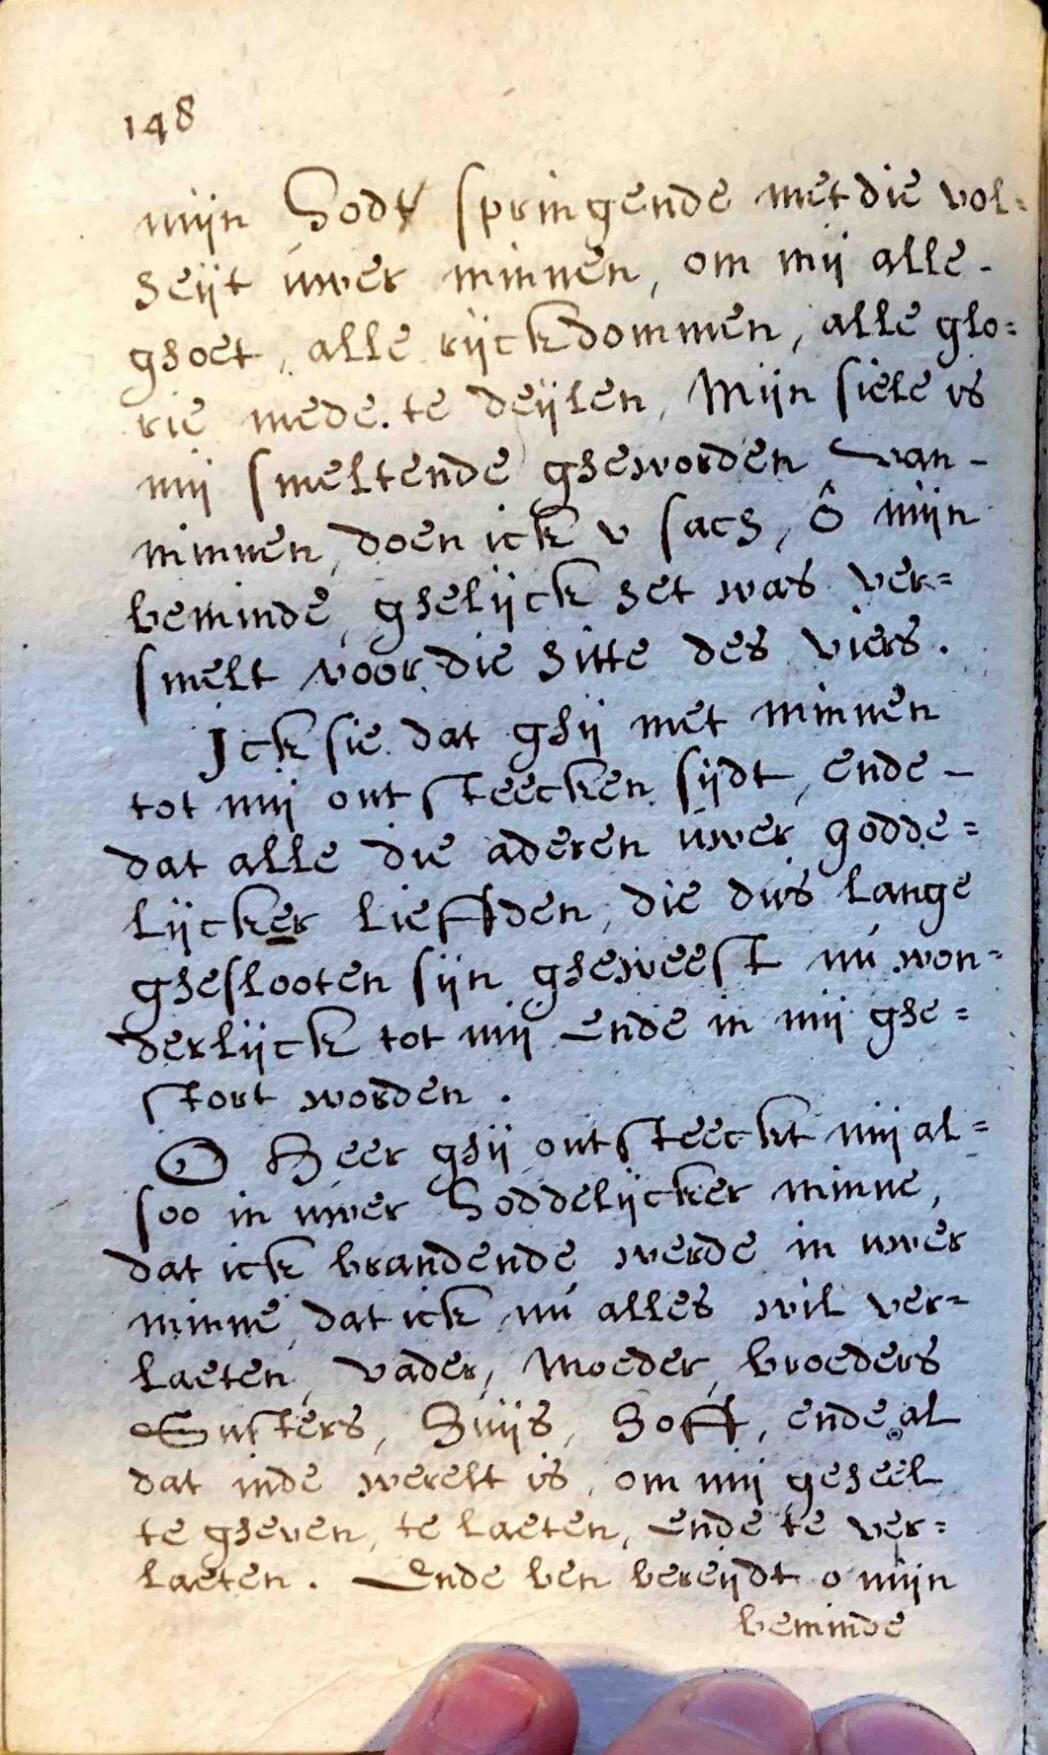 148
mijn Godt springende met die vol-
heijt uwer minnen, om mij alle -
ghoet, alle rijckdommen, alle glo=
rie mede. te deijlen, Mijn siele is
mij smeltende gheworden van -
minnen, doen ick v sach, ô mijn
beminde, ghelijck het was ver=
smelt voor die hitte des viers.
Jck sie dat ghij met minnen
tot mij ontsteecken sijdt, ende -
dat alle die aderen úwer godde=
lijcker liefften, die dus lange
gheslooten sijn gheweest nú won=
derlijck tot mij ende in mij ghe=
stort worden.
O Heer ghij ontsteeckt mij al=
soo in uwer Goddelijcker minne,
dat ick brandende werde in uwer
minne, dat ick nú alles wil ver=
laeten, vader, Moeder, broeders
Susters, Huijs, Hoff, ende al
dat inde werelt is, om mij geheel
te gheven, te laeten, ende te ver=
laeten. Ende ben bereijdt o mijn
beminde